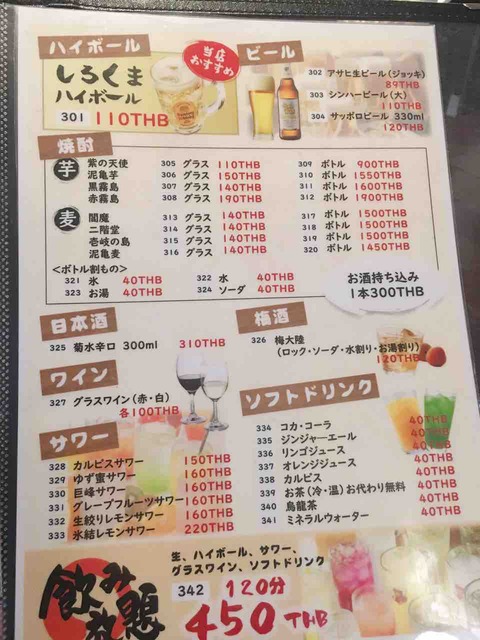 ハイボール
当店
おすすめ
しろくま
ハイボール
301 110THB
ビール
302 アサヒ生ビール(ジョッキ)
89THB
303 シンハービール(大)
110THB
304 サッポロビール 330ml
120THB
焼酎
芋
紫の天使 305 グラス 110THB 309 ボトル 900THB
泥亀芋 306 グラス 150THB 310 ボトル 1550THB
黒霧島 307 グラス 140THB 311 ボトル 1600THB
赤霧島 308 グラス 190THB 312 ボトル 1900THB
麦
閻魔 313 グラス 140THB 317 ボトル 1500THB
二階堂 314 グラス 140THB 318 ボトル 1500THB
壱岐の島 315 グラス 140THB 319 ボトル 1500THB
泥亀麦 316 グラス 140THB 320 ボトル 1450THB
<ボトル割もの>
321 氷 40THB 322 水 40THB
323 お湯 40THB 324 ソーダ 40THB
お酒持ち込み
1本300THB
日本酒
325 菊水辛口 300ml 310THB
梅酒
326 梅大陸
(ロック・ソーダ・水割り・お湯割り)
120THB
ワイン
327 グラスワイン(赤・白)
各100THB
サワー
328 カルピスサワー 150THB
329 ゆず蜜サワー 160THB
330 巨峰サワー 160THB
331 グレープフルーツサワー 160THB
332 生絞りレモンサワー 160THB
333 氷結レモンサワー 220THB
ソフトドリンク
334 コカ・コーラ 40THB
335 ジンジャーエール 40THB
336 リンゴジュース 40THB
337 オレンジジュース 40THB
338 カルピス 40THB
339 お茶(冷・温)お代わり無料 40THB
340 烏龍茶 40THB
341 ミネラルウォーター 40THB
飲み放題
生、ハイボール、サワー、
グラスワイン、ソフトドリンク
342 120分
450THB